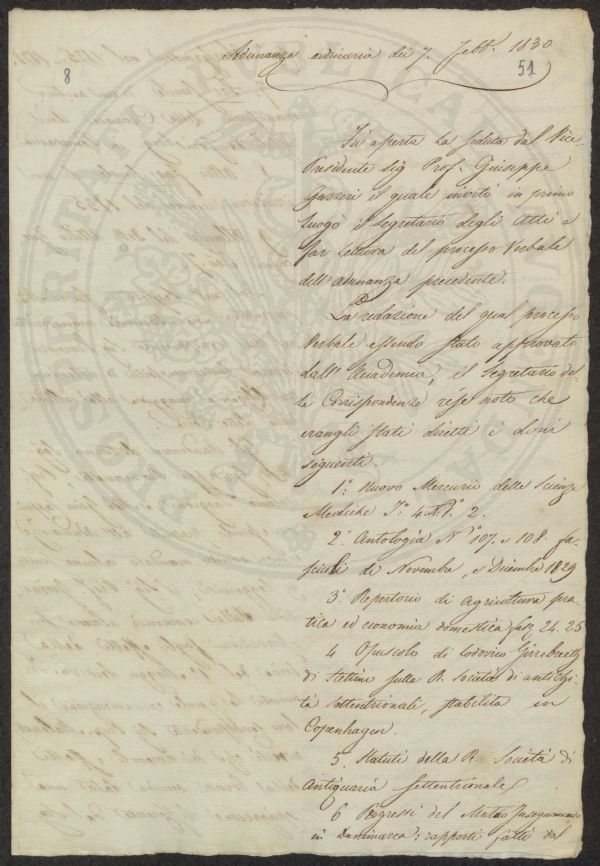 Adunanza ordinaria dei 7. Febb. 1830
8
51
Fu aperta la seduta dal Vice-
Presidente Sig. Prof. Giuseppe
Gazzeri il quale invitò in primo
luogo il Segretario degli Atti a
far lettura del processo Verbale
dell'adunanza precedente.
La redazione del qual processo
Verbale essendo stato approvato
dall'Accademia, il Segretario del-
le Corrispondenze rese noto che
erangli stati diretti i doni
seguenti.
1.° Nuovo Mercurio delle Scienze
Mediche T.° 4. N.° 2.
2.° Antologia N.° 107. e 108. fa-
scicoli di Novembre, e Dicembre 1829
3.° Repertorio di Agricoltura pra-
tica ed economia domestica fasc. 24. 25
4 Opuscolo di Lodovico
di Stettino sulla R. Società di antichi-
tà settentrionali, stabilita in
Copenhagen.
5. Statuti della R. Società di
Antiquaria Settentrionale
6 Progressi del Mutuo Insegnamento
in Danimarca: rapporti fatti dal